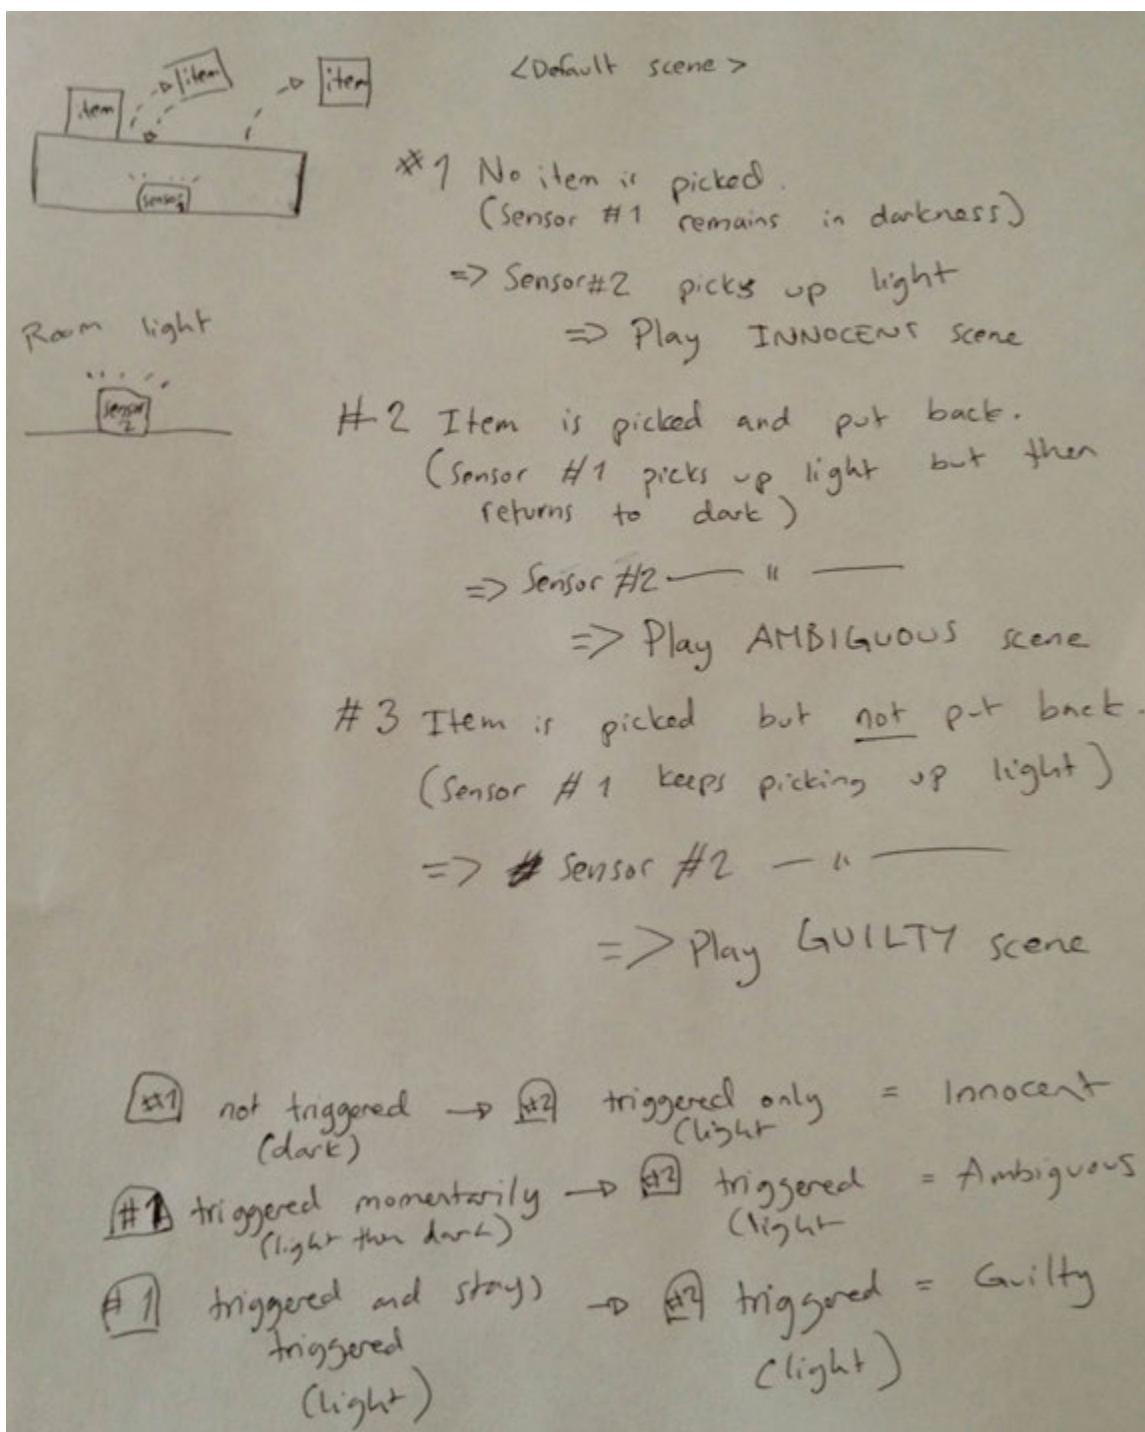 <Default scene>
item
item
item
sensor 1
#1 No item is picked.
(Sensor #1 remains in darkness)
=> Sensor #2 picks up light
=> Play INNOCENT scene
Room light
sensor 2
#2 Item is picked and put back.
(Sensor #1 picks up light but then
returns to dark)
=> Sensor #2 — " —
=> Play AMBIGUOUS scene
#3 Item is picked but not put back.
(Sensor #1 keeps picking up light)
=> Sensor #2 — " —
=> Play GUILTY scene
#1 not triggered → #2 triggered only = Innocent
(dark) (light
#1 triggered momentarily → #2 triggered = Ambiguous
(light then dark) (light
#1 triggered and stays → #2 triggered = Guilty
triggered
(light) (light)